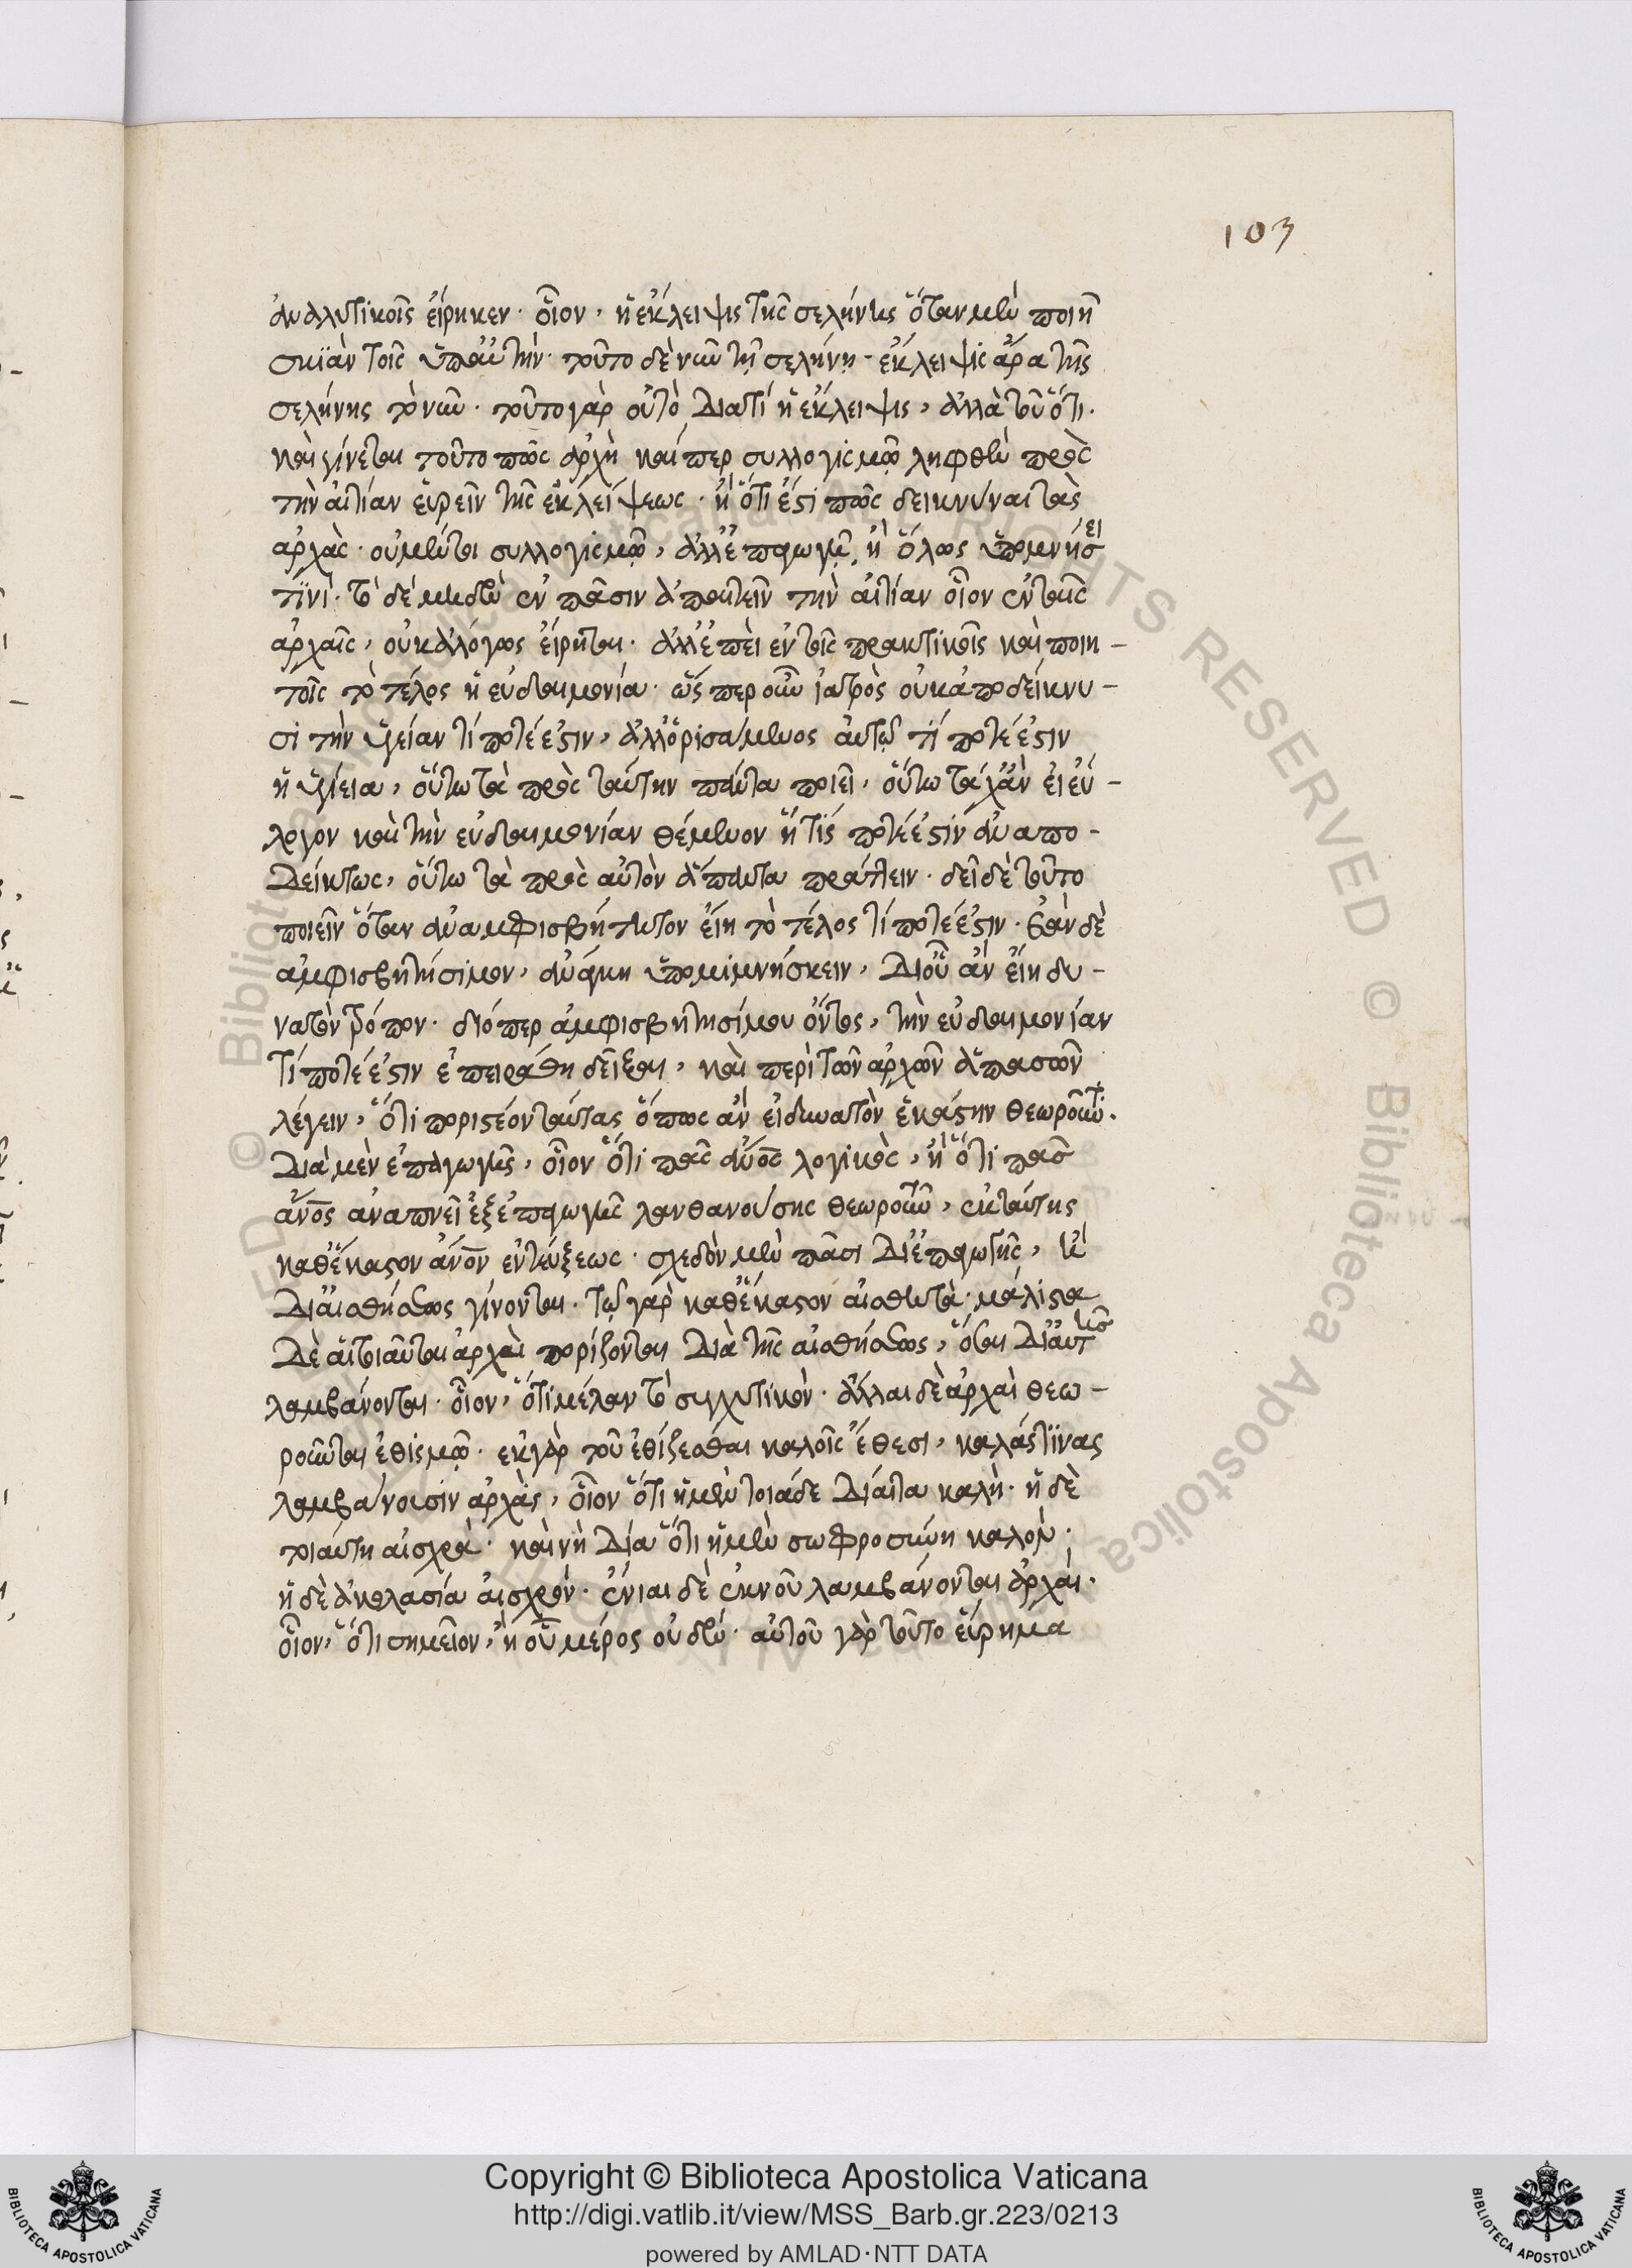 103
ἀναλυτικοῖς εἴρηκεν· οἷον, ἡ ἔκλειψις τῆς σελήνης ὅταν μὲν ποιῇ
σκιὰν τοῖς ὑπ' αὐτὴν· τοῦτο δὲ νῦν τῇ σελήνῃ· ἔκλειψις ἄρα τῆς
σελήνης τὸ νῦν. τοῦτο γὰρ οὐ τὸ διατί ἡ ἔκλειψις, ἀλλὰ τοῦ ὅτι.
καὶ γίνεται τοῦτο πῶς ἀρχὴ καίπερ συλλογισμῷ ληφθὲν πρὸς
τὴν αἰτίαν εὑρεῖν τῆς ἐκλείψεως. ἢ ὅτι ἔστι πῶς δεικνύναι τὰς
ἀρχὰς. οὐ μέντοι συλλογισμῷ, ἀλλ' ἐπαγωγῇ ἢ ὅλως ὑπομνήσει
τινὶ. τὸ δὲ μηδὲν ἐν πᾶσιν ἀπαιτεῖν τὴν αἰτίαν οἷον ἐν ταῖς
ἀρχαῖς, οὐκ ἀλόγως εἴρηται. ἀλλ' ἐπεὶ ἐν τοῖς πρακτικοῖς καὶ ποιη-
τοῖς τὸ τέλος ἡ εὐδαιμονία. ὥσπερ οὖν ἰατρὸς οὐκ ἀποδείκνυ-
σι τὴν ὑγείαν τί ποτέ ἐστιν, ἀλλ' ὁρισάμενος αὐτῷ τί ποτέ ἐστιν
ἡ ὑγίεια, οὕτω τὰ πρὸς ταύτην πάντα ποιεῖ, οὕτω τάχ' ἂν εἰ εὔ-
λογόν καὶ τὴν εὐδαιμονίαν θέμενον ἥτις ποτέ ἐστίν ἀναπο-
δείκτως, οὕτω τὰ πρὸς αὐτὸν ἅπαντα πράττειν. δεῖ δὲ τοῦτο
ποιεῖν ὅταν ἀναμφισβήτητον εἴη τὸ τέλος τί ποτέ ἐστιν. ἐὰν δὲ
ἀμφισβητήσιμον, ἀνάγκη ὑπομιμνήσκειν, δι' οὗ ἂν εἴη δυ-
νατὸν τρόπον. διόπερ ἀμφισβητησίμου ὄντος, τὴν εὐδαιμονίαν
τί ποτέ ἐστιν ἐπειράθη δεῖξαι, καὶ περὶ τῶν ἀρχῶν ἁπασῶν
λέγειν, ὅτι ποριστέον ταύτας ὅπως ἂν εἰ δυνατὸν ἑκάστην θεωροῦντι.
διὰ μὲν ἐπαγωγῆς, οἷον ὅτι πᾶς ἄνος λογικὸς, ἢ ὅτι πᾶς
ἄνος ἀναπνεῖ ἐξ ἐπαγωγῆς λανθανούσης θεωροῦν, ἐκ ταύτης
καθ' ἕκαστον ἄνον ἐντεύξεως. σχεδὸν μὲν πᾶσι δι' ἐπαγωγῆς, ἢ
δι' αἰσθήσεως γίνονται. τῷ γὰρ καθ' ἕκαστον αἰσθητὰ. μάλιστα
δὲ αἱ τοιαῦται ἀρχαὶ πορίζονται διὰ τῆς αἰσθήσεως, ὅσαι δι' αὐτῆς
λαμβάνονται. οἷον, ὅτι μέλαν τὸ συγχυτικὸν. ἄλλαι δὲ ἀρχαὶ θεω-
ροῦνται ἐθισμῷ. ἐκ γὰρ τοῦ ἐθίζεσθαι καλοῖς ἔθεσι, καλάς τινας
λαμβάνουσιν ἀρχὰς, οἷον ὅτι ἡ μὲν τοιάδε δίαιτα καλὴ. ἡ δὲ
τοιαύτη αἰσχρὰ. καὶ νὴ Δία ὅτι ἡ μὲν σωφροσύνη καλὸν.
ἡ δὲ ἀκολασία αἰσχρόν. ἔνιαι δὲ ἐκ νοῦ λαμβάνονται ἀρχάι.
οἷον, ὅτι σημεῖον, ἢ οὗ μέρος οὐδέν. αὐτοῦ γὰρ τοῦτο εὕρημα
Copyright © Biblioteca Apostolica Vaticana
http://digi.vatlib.it/view/MSS_Barb.gr.223/0213
powered by AMLAD·NTT DATA